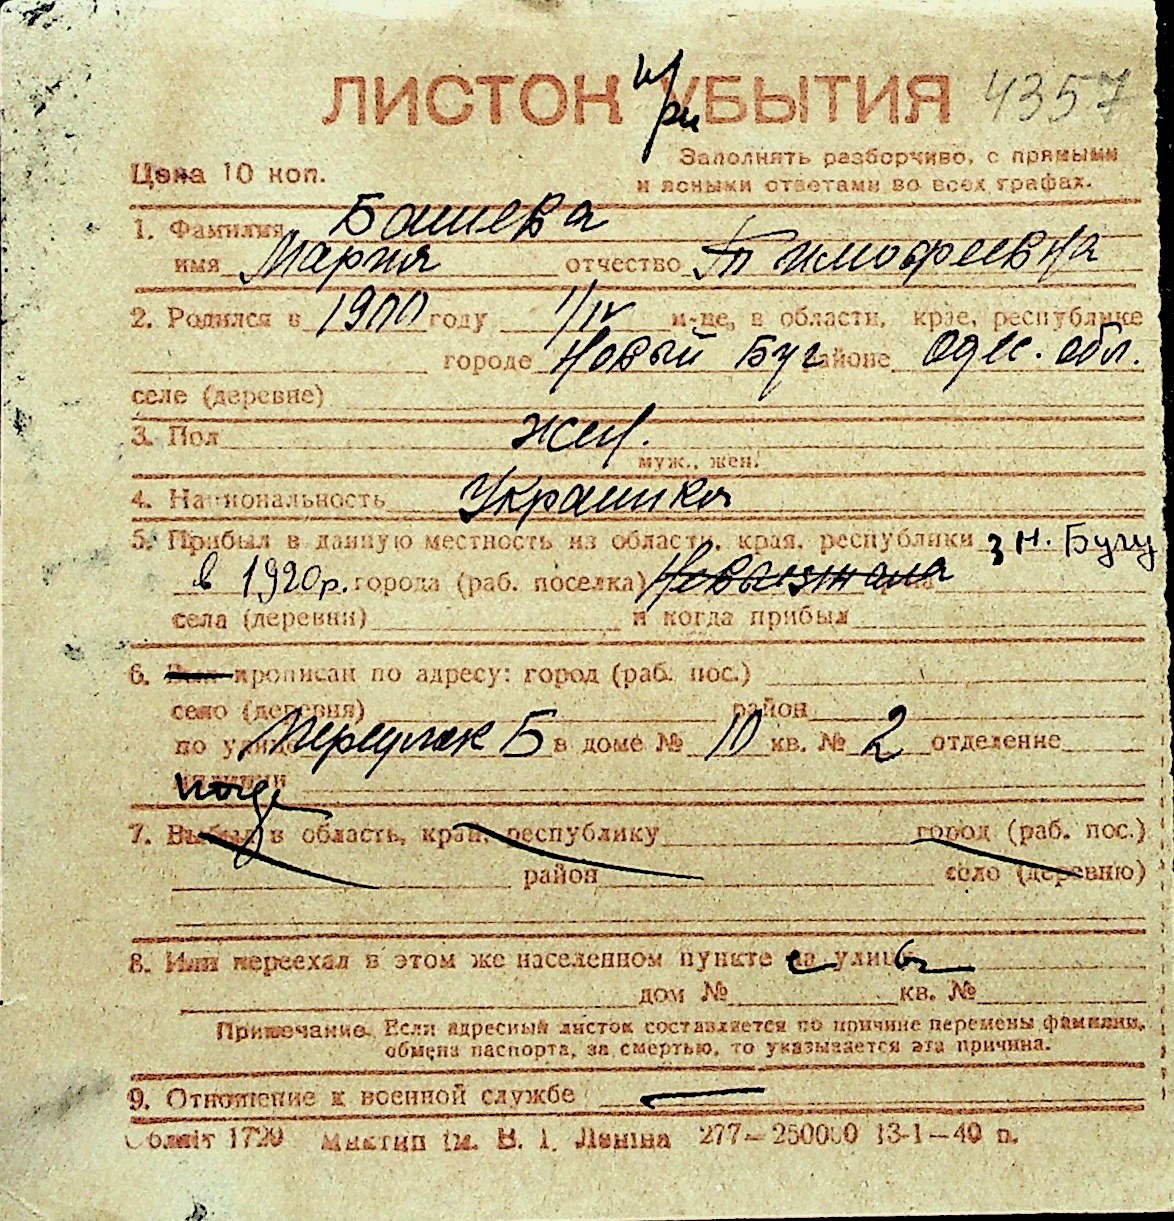 ЛИСТОК УБЫТИЯ 4357
при
Цена 10 коп.
Заполнять разборчиво, с прямыми
и ясными ответами во всех графах.
1. Фамилия Башева
имя Мария отчество Тимофеевна
2. Родился в 1900 году 1/IV м-це, в области, крае, республике
городе Новый Буг районе Одес. обл.
селе (деревне)
3. Пол жен.
муж., жен.
4. Национальность Украинка
5. Прибыл в данную местность из области, края, республики з Н. Бугу
в 1920 р. города (раб. поселка) Невыезжала
села (деревни) и когда прибыл
6. Был прописан по адресу: город (раб. пос.)
село (деревня) район
по улице Переулок Б в доме № 10 кв. № 2 отделение
милиции
7. Выбыл в область, край, республику город (раб. пос.)
район село (деревню)
8. Или переехал в этом же населенном пункте на улицу
дом № кв. №
Примечание. Если адресный листок составляется по причине перемены фамилии,
обмена паспорта, за смертью, то указывается эта причина.
9. Отношение к военной службе
Облліт 1720 Миктип ім. В. І. Леніна 277—250000 13-1—40 п.